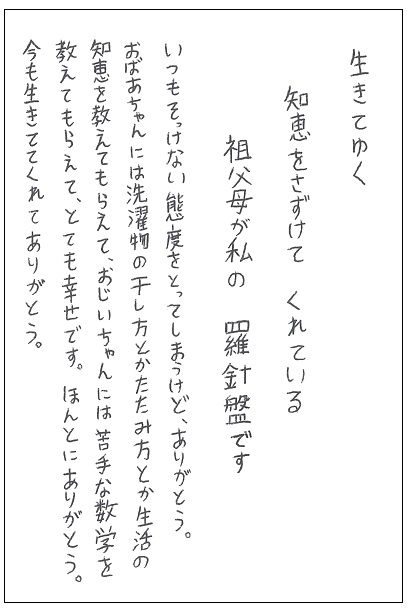 生きてゆく
知恵をさずけて　くれている
祖父母が私の　羅針盤です
いつもそっけない態度をとってしまうけど、ありがとう。
おばあちゃんには洗濯物の干し方とかたたみ方とか生活の
知恵を教えてもらえて、おじいちゃんには苦手な数学を
教えてもらえて、とても幸せです。ほんとにありがとう。
今も生きててくれてありがとう。